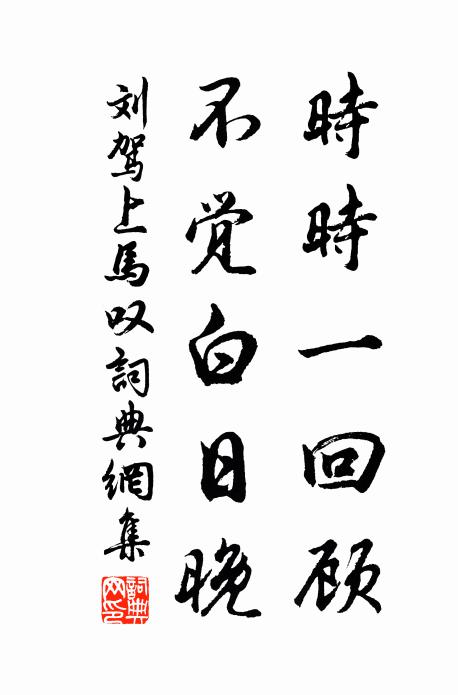 時時一回顾
不觉白日晚
刘驾上馬叹詞典網集
詞典網印